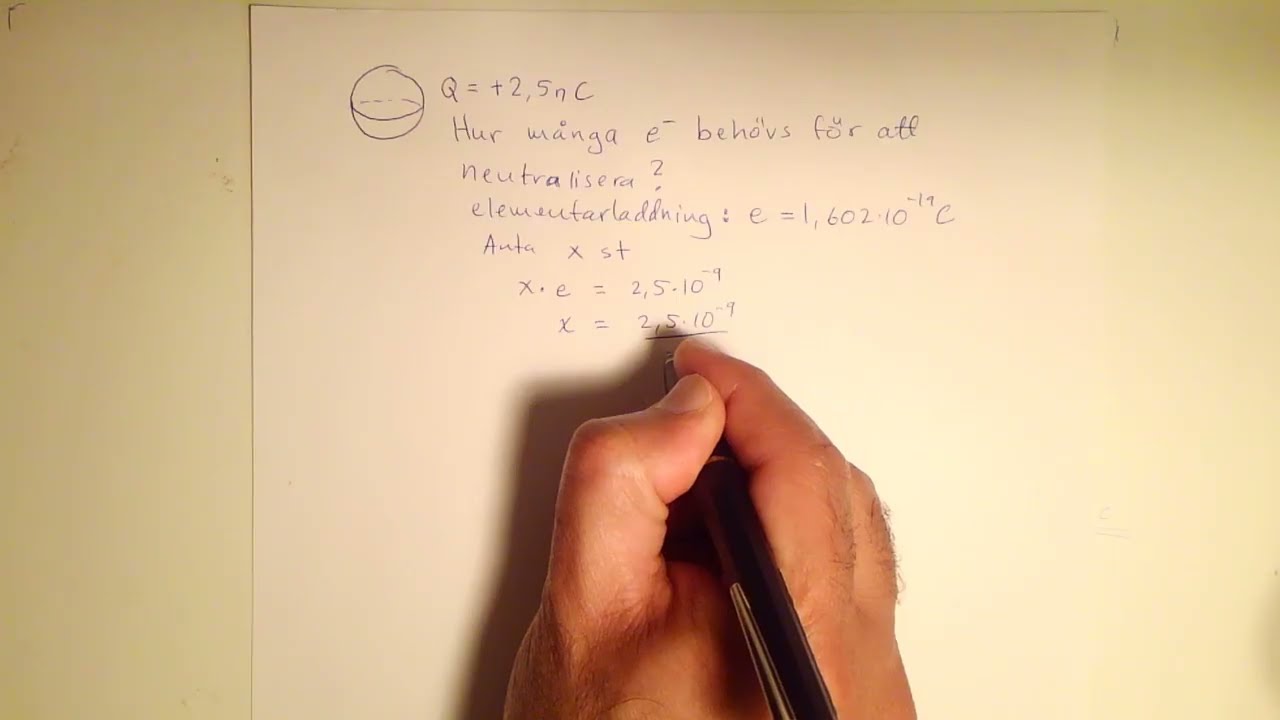 Q = +2,5nC
Hur många e⁻ behövs för att
neutralisera?
elementarladdning: e = 1,602·10⁻¹⁹C
Anta x st
x· e = 2,5·10⁻⁹
x = 2,5·10⁻⁹